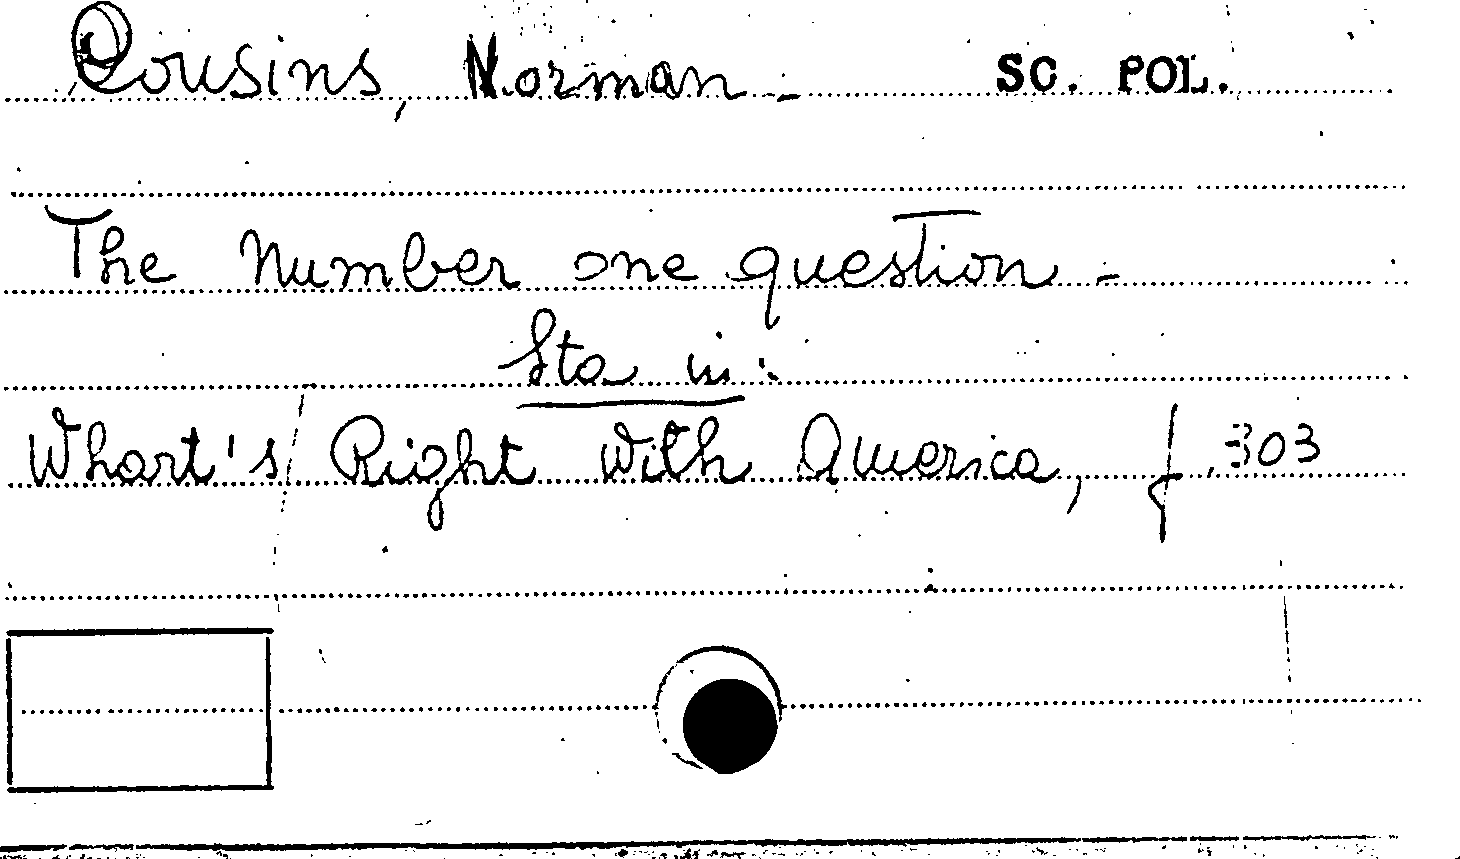 Cousins, Norman - SC. POL.
The Number one question -
Sta in:
What's Right With America, p. 303